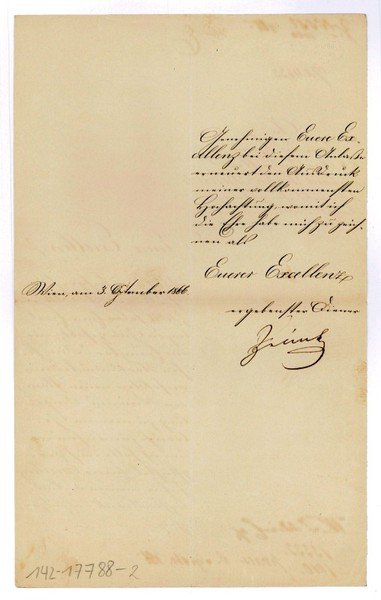 Genehmigen Euere Ex-
cellenz bei diesem Anlaße
erneuert den Ausdruck
meiner vollkommensten
Hochachtung, womit ich
die Ehre habe mich zu zeich-
nen als
Euerer Excellenz
Wien, am 3. 1866.
ergebenster Diener
142-17788-2